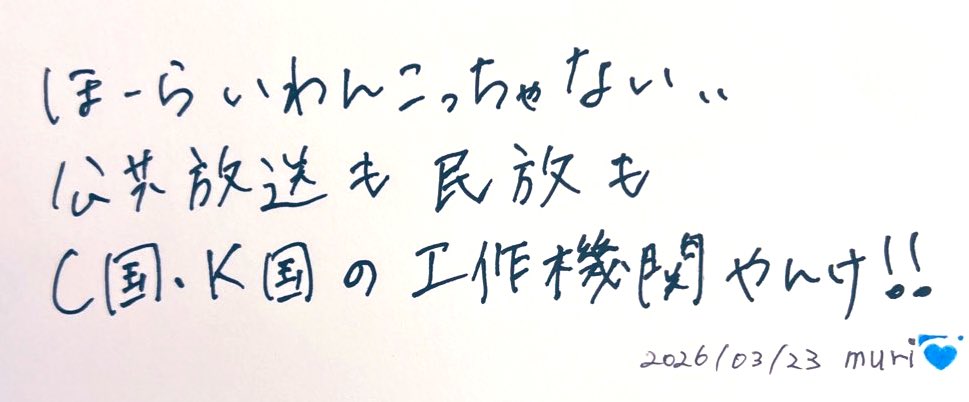 ほーらいわんこっちゃない..
公共放送も民放も
C国・K国の工作機関やんけ!!
2026/03/23 muri💙